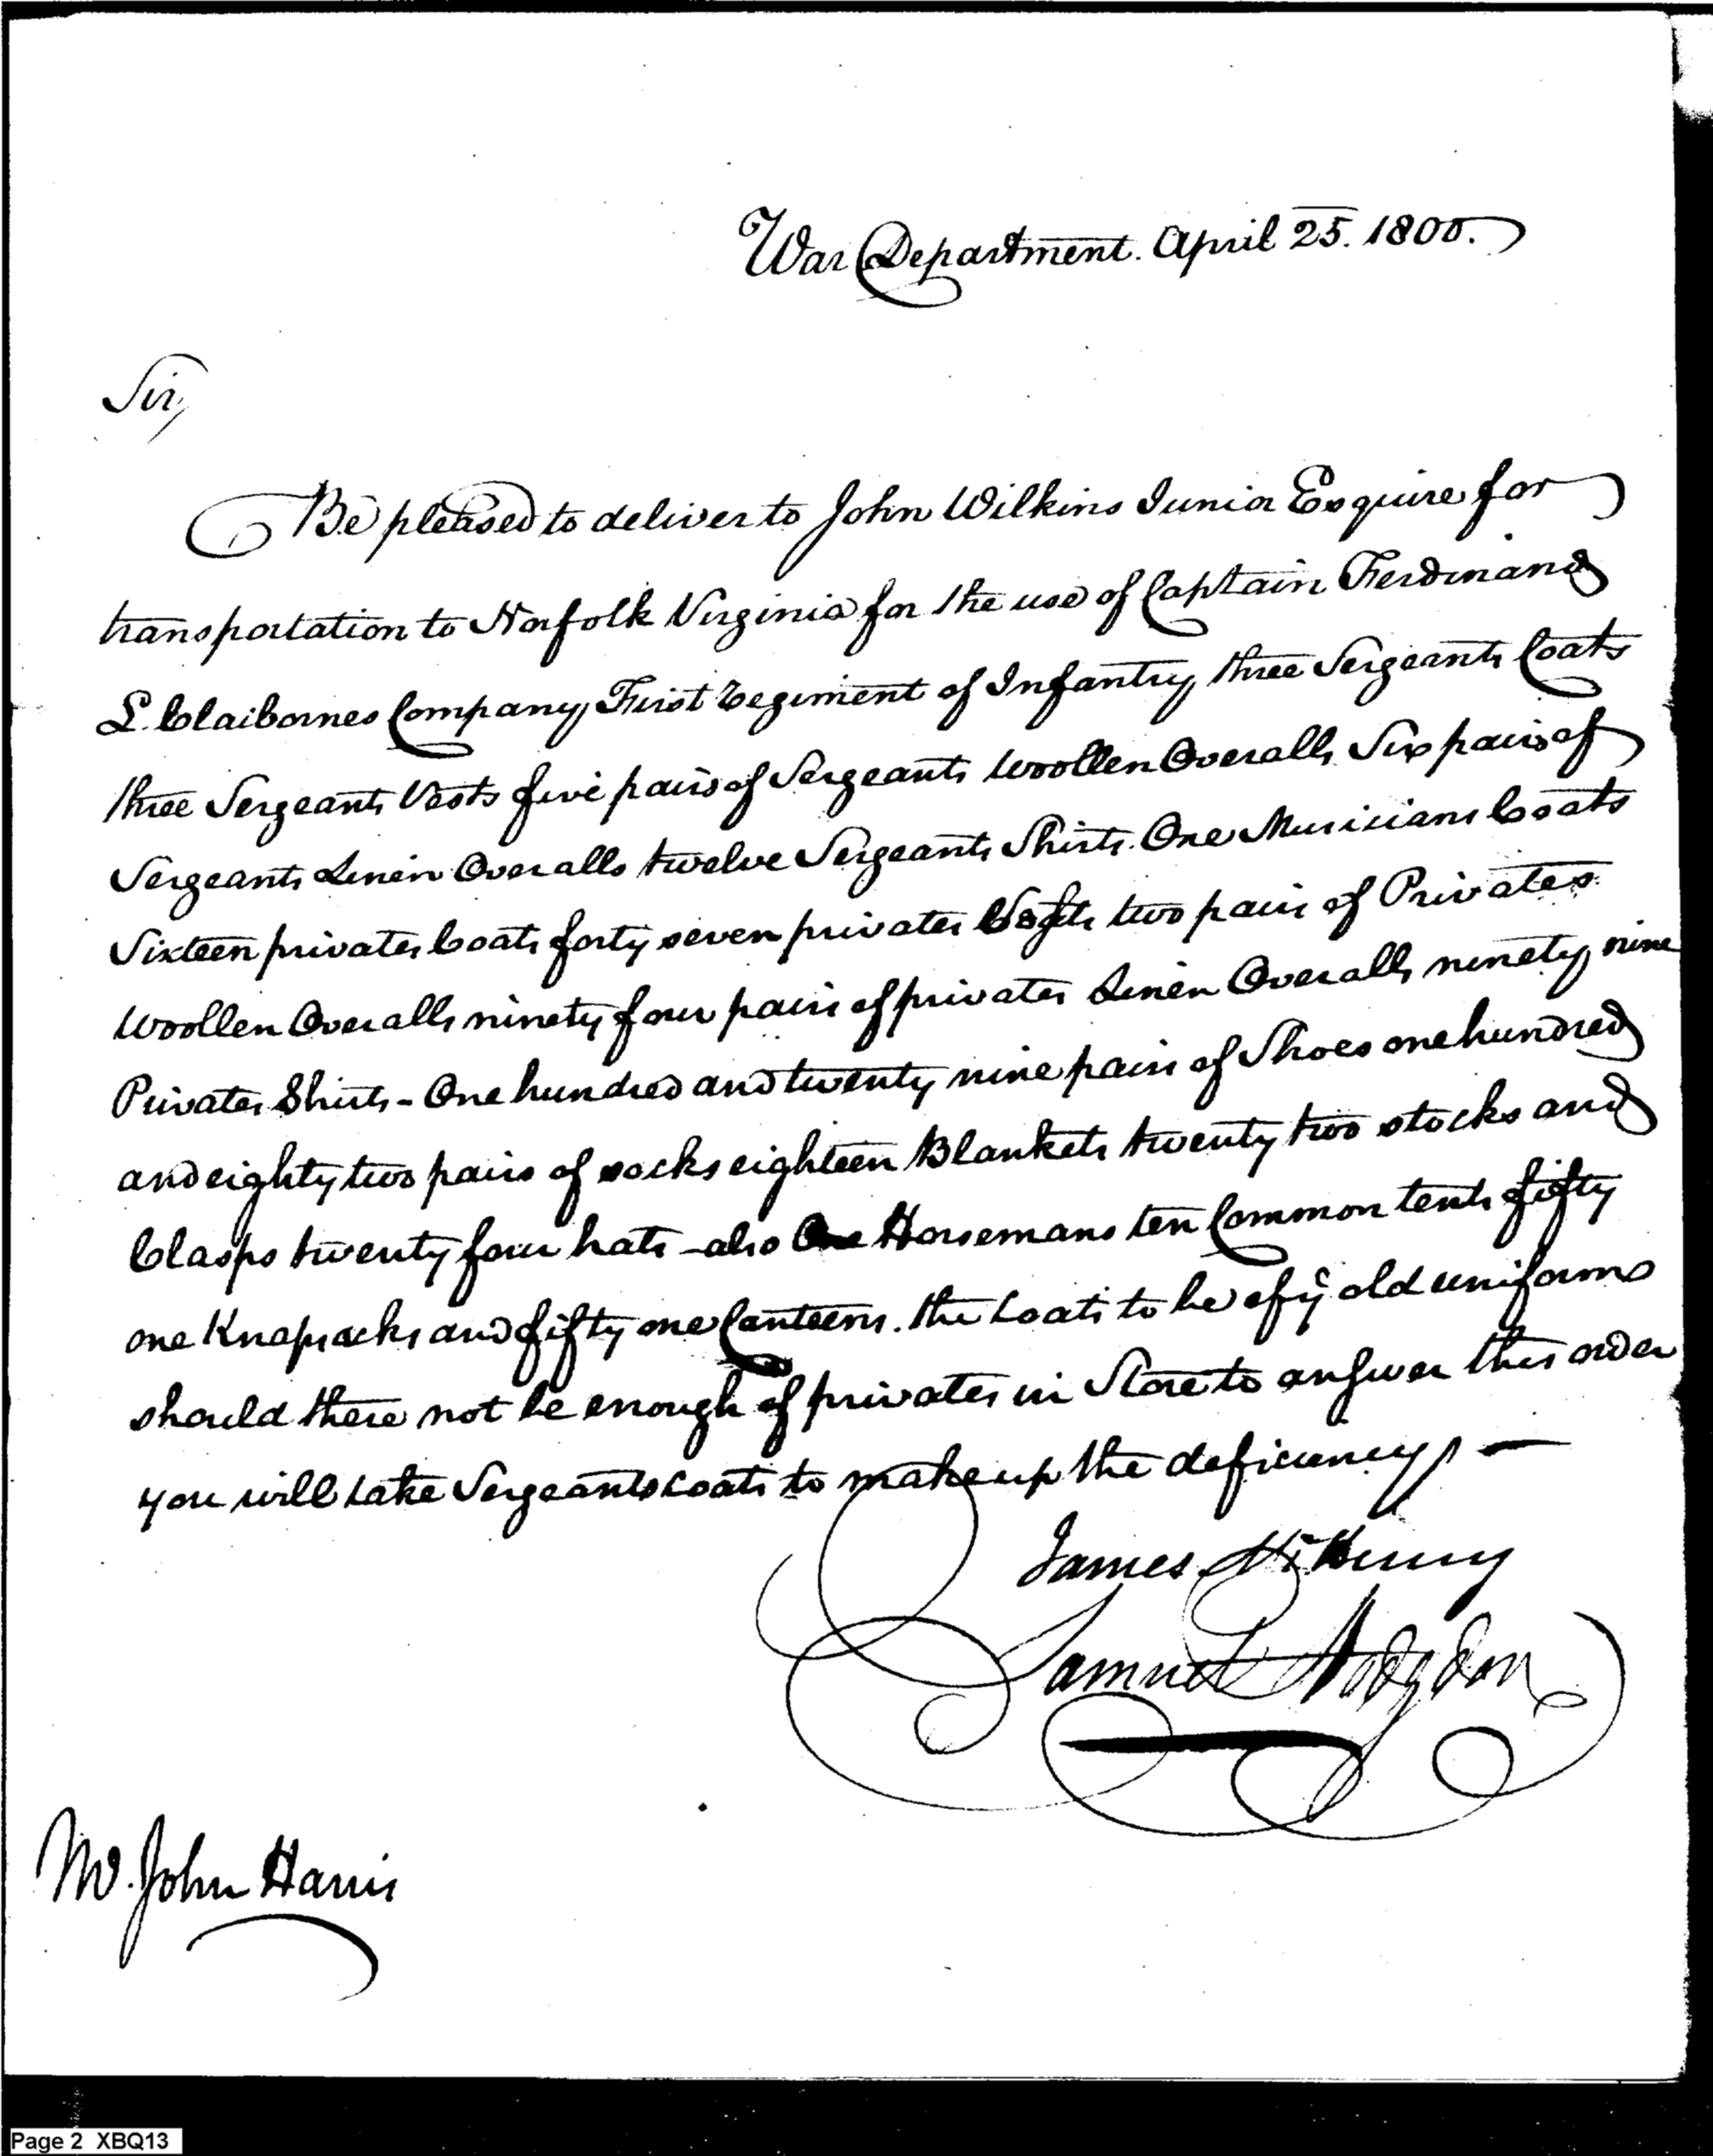 War Department. April 25. 1800.
Sir,
Be pleased to deliver to John Wilkins Junior Esquire for
transportation to Norfolk Virginia for the use of Captain Ferdinand
L. Claibornes Company, First regiment of Infantry, three Sergeants Coats
three Sergeants Vests five pairs of Sergeants Woollen Overalls Six pairs of
Sergeants Linen Overalls twelve Sergeants Shirts. One Musicians Coats
Sixteen privates Coats forty seven privates Vests two pairs of Privates
Woollen Overalls ninety four pairs of privates Linen Overalls ninety nine
Privates Shirts - One hundred and twenty nine pairs of Shoes one hundred
and eighty two pairs of socks eighteen Blankets twenty two stocks and
Clasps twenty four hats - also One Horsemans ten Common tents fifty
one Knapsacks and fifty one Canteens. the Coats to be of ye old uniforms
should there not be enough of privates in Store to answer this order
you will take Sergeants coats to make up the deficiency, —
James McHenry
Samuel Hodgdon
Mr. John Harris
Page 2 XBQ13